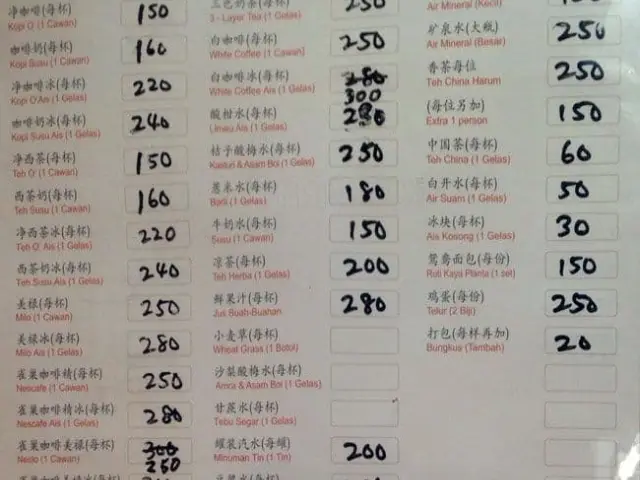 净咖啡(每杯) 150
Kopi O (1 Cawan)
咖啡奶(每杯) 160
Kopi Susu (1 Cawan)
净咖啡冰(每杯) 220
Kopi O'Ais (1 Gelas)
咖啡奶冰(每杯) 240
Kopi Susu Ais (1 Gelas)
净西茶(每杯) 150
Teh O' (1 Cawan)
西茶奶(每杯) 160
Teh Susu (1 Cawan)
净西茶冰(每杯) 220
Teh O' Ais (1 Gelas)
西茶奶冰(每杯) 240
Teh Susu Ais (1 Gelas)
美禄(每杯) 250
Milo (1 Cawan)
美禄冰(每杯) 280
Milo Ais (1 Gelas)
雀巢咖啡精(每杯) 250
Nescafe (1 Cawan)
雀巢咖啡精冰(每杯) 280
Nescafe Ais (1 Gelas)
雀巢咖啡美禄(每杯) 300
Neslo (1 Cawan) 250
三色奶茶(每杯) 250
3 - Layer Tea (1 Gelas)
白咖啡(每杯) 250
White Coffee (1 Cawan)
白咖啡冰(每杯) 280
White Coffee Ais (1 Gelas) 300
酸柑水(每杯)
Limau Ais (1 Gelas)
桔子酸梅水(每杯) 250
Kasturi & Asam Boi (1 Gelas)
薏米水(每杯) 180
Barli (1 Gelas)
牛奶水(每杯) 150
Susu (1 Cawan)
凉茶(每杯) 200
Teh Herba (1 Gelas)
鲜果汁(每杯) 280
Jus Buah-Buahan
小麦草(每杯)
Wheat Grass (1 Botol)
沙梨酸梅水(每杯)
Amra & Asam Boi (1 Gelas)
甘蔗水(每杯)
Tebu Segar (1 Gelas)
罐装汽水(每罐) 200
Minuman Tin (1 Tin)
Air Mineral (Kecil)
矿泉水(大瓶) 250
Air Mineral (Besar)
香茶每位 250
Teh China Harum
(每位另加) 150
Extra 1 person
中国茶(每杯) 60
Teh China (1 Gelas)
白开水(每杯) 50
Air Suam (1 Gelas)
冰块(每杯) 30
Ais Kosong (1 Gelas)
鸳鸯面包(每份) 150
Roti Kaya Planta (1 set)
鸡蛋(每份) 250
Telur (2 Biji)
打包(每杯再加) 20
Bungkus (Tambah)